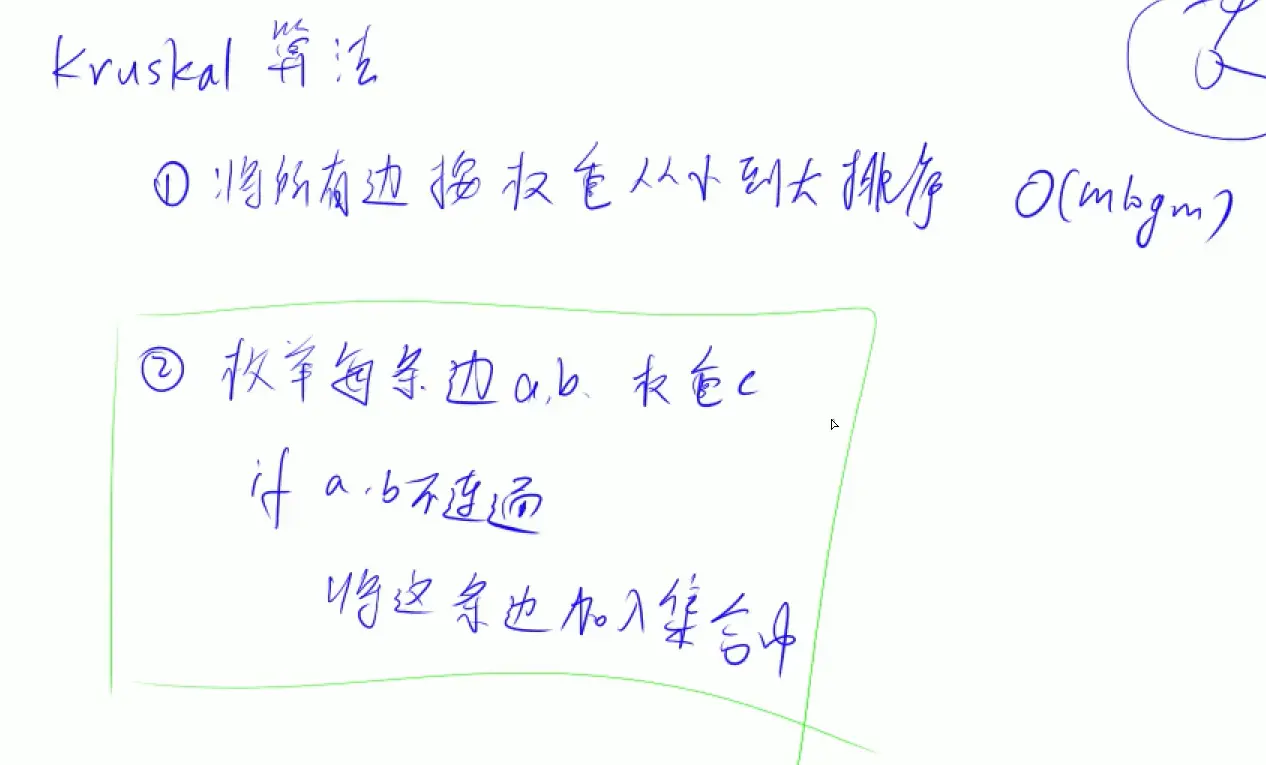 Kruskal 算法
① 将所有边按权重从小到大排序 O(mlogm)
② 枚举每条边a,b, 权重c
if a,b不连通
将这条边加入集合中